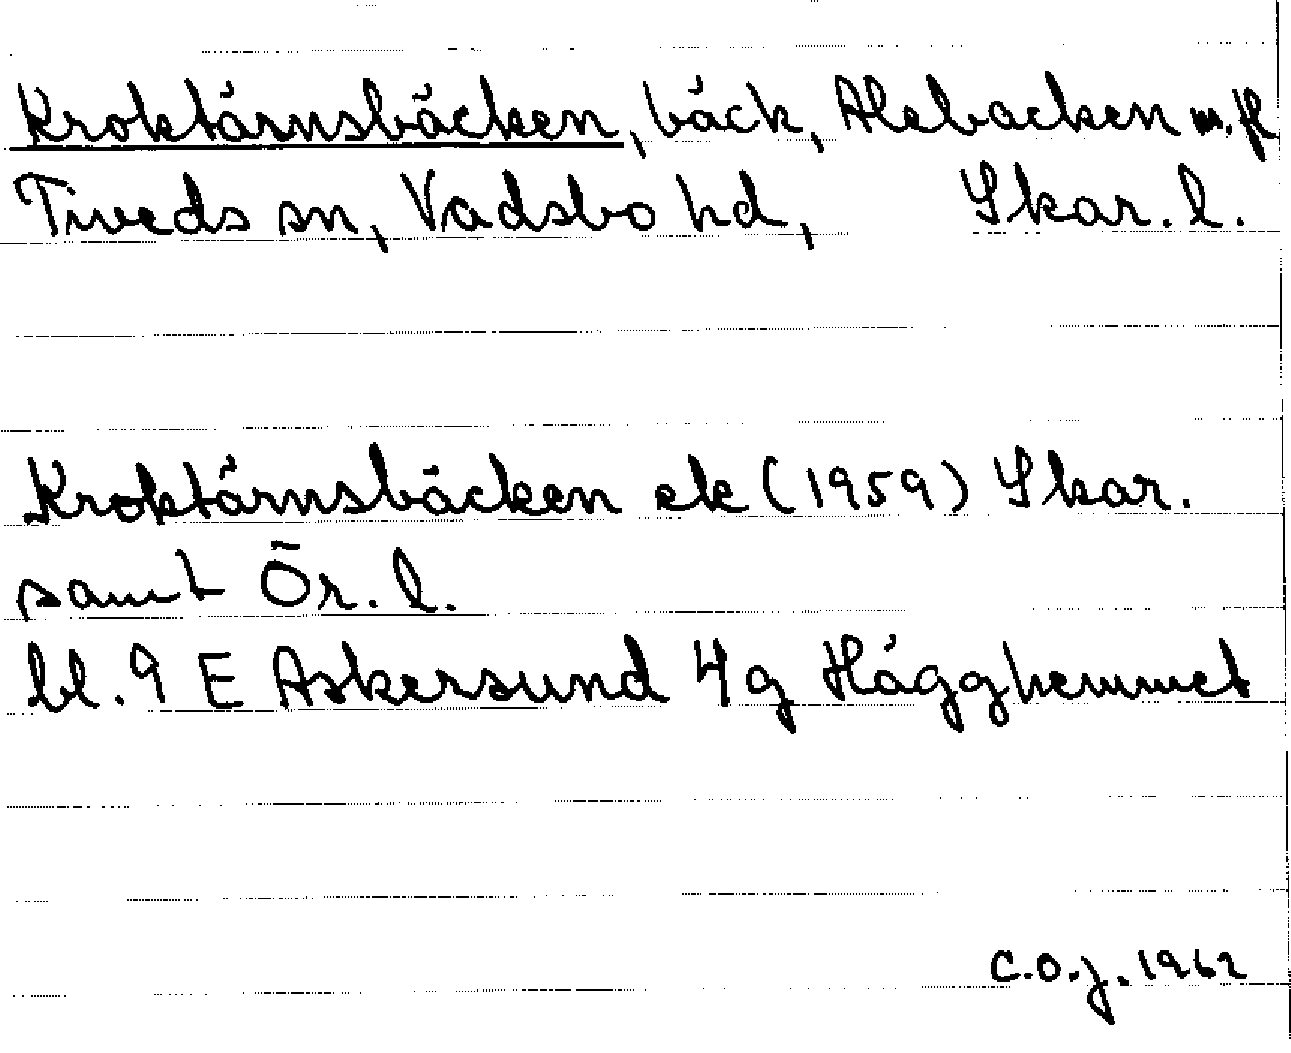 Kroktärnsbäcken, bäck, Alebacken m. fl.
Tiveds sn, Vadsbo hd, Skar. l.
Kroktärnsbäcken ek (1959) Skar.
samt Ör. l.
bl. 9 E Askersund 4g Hägghemmet
C.O.J. 1962